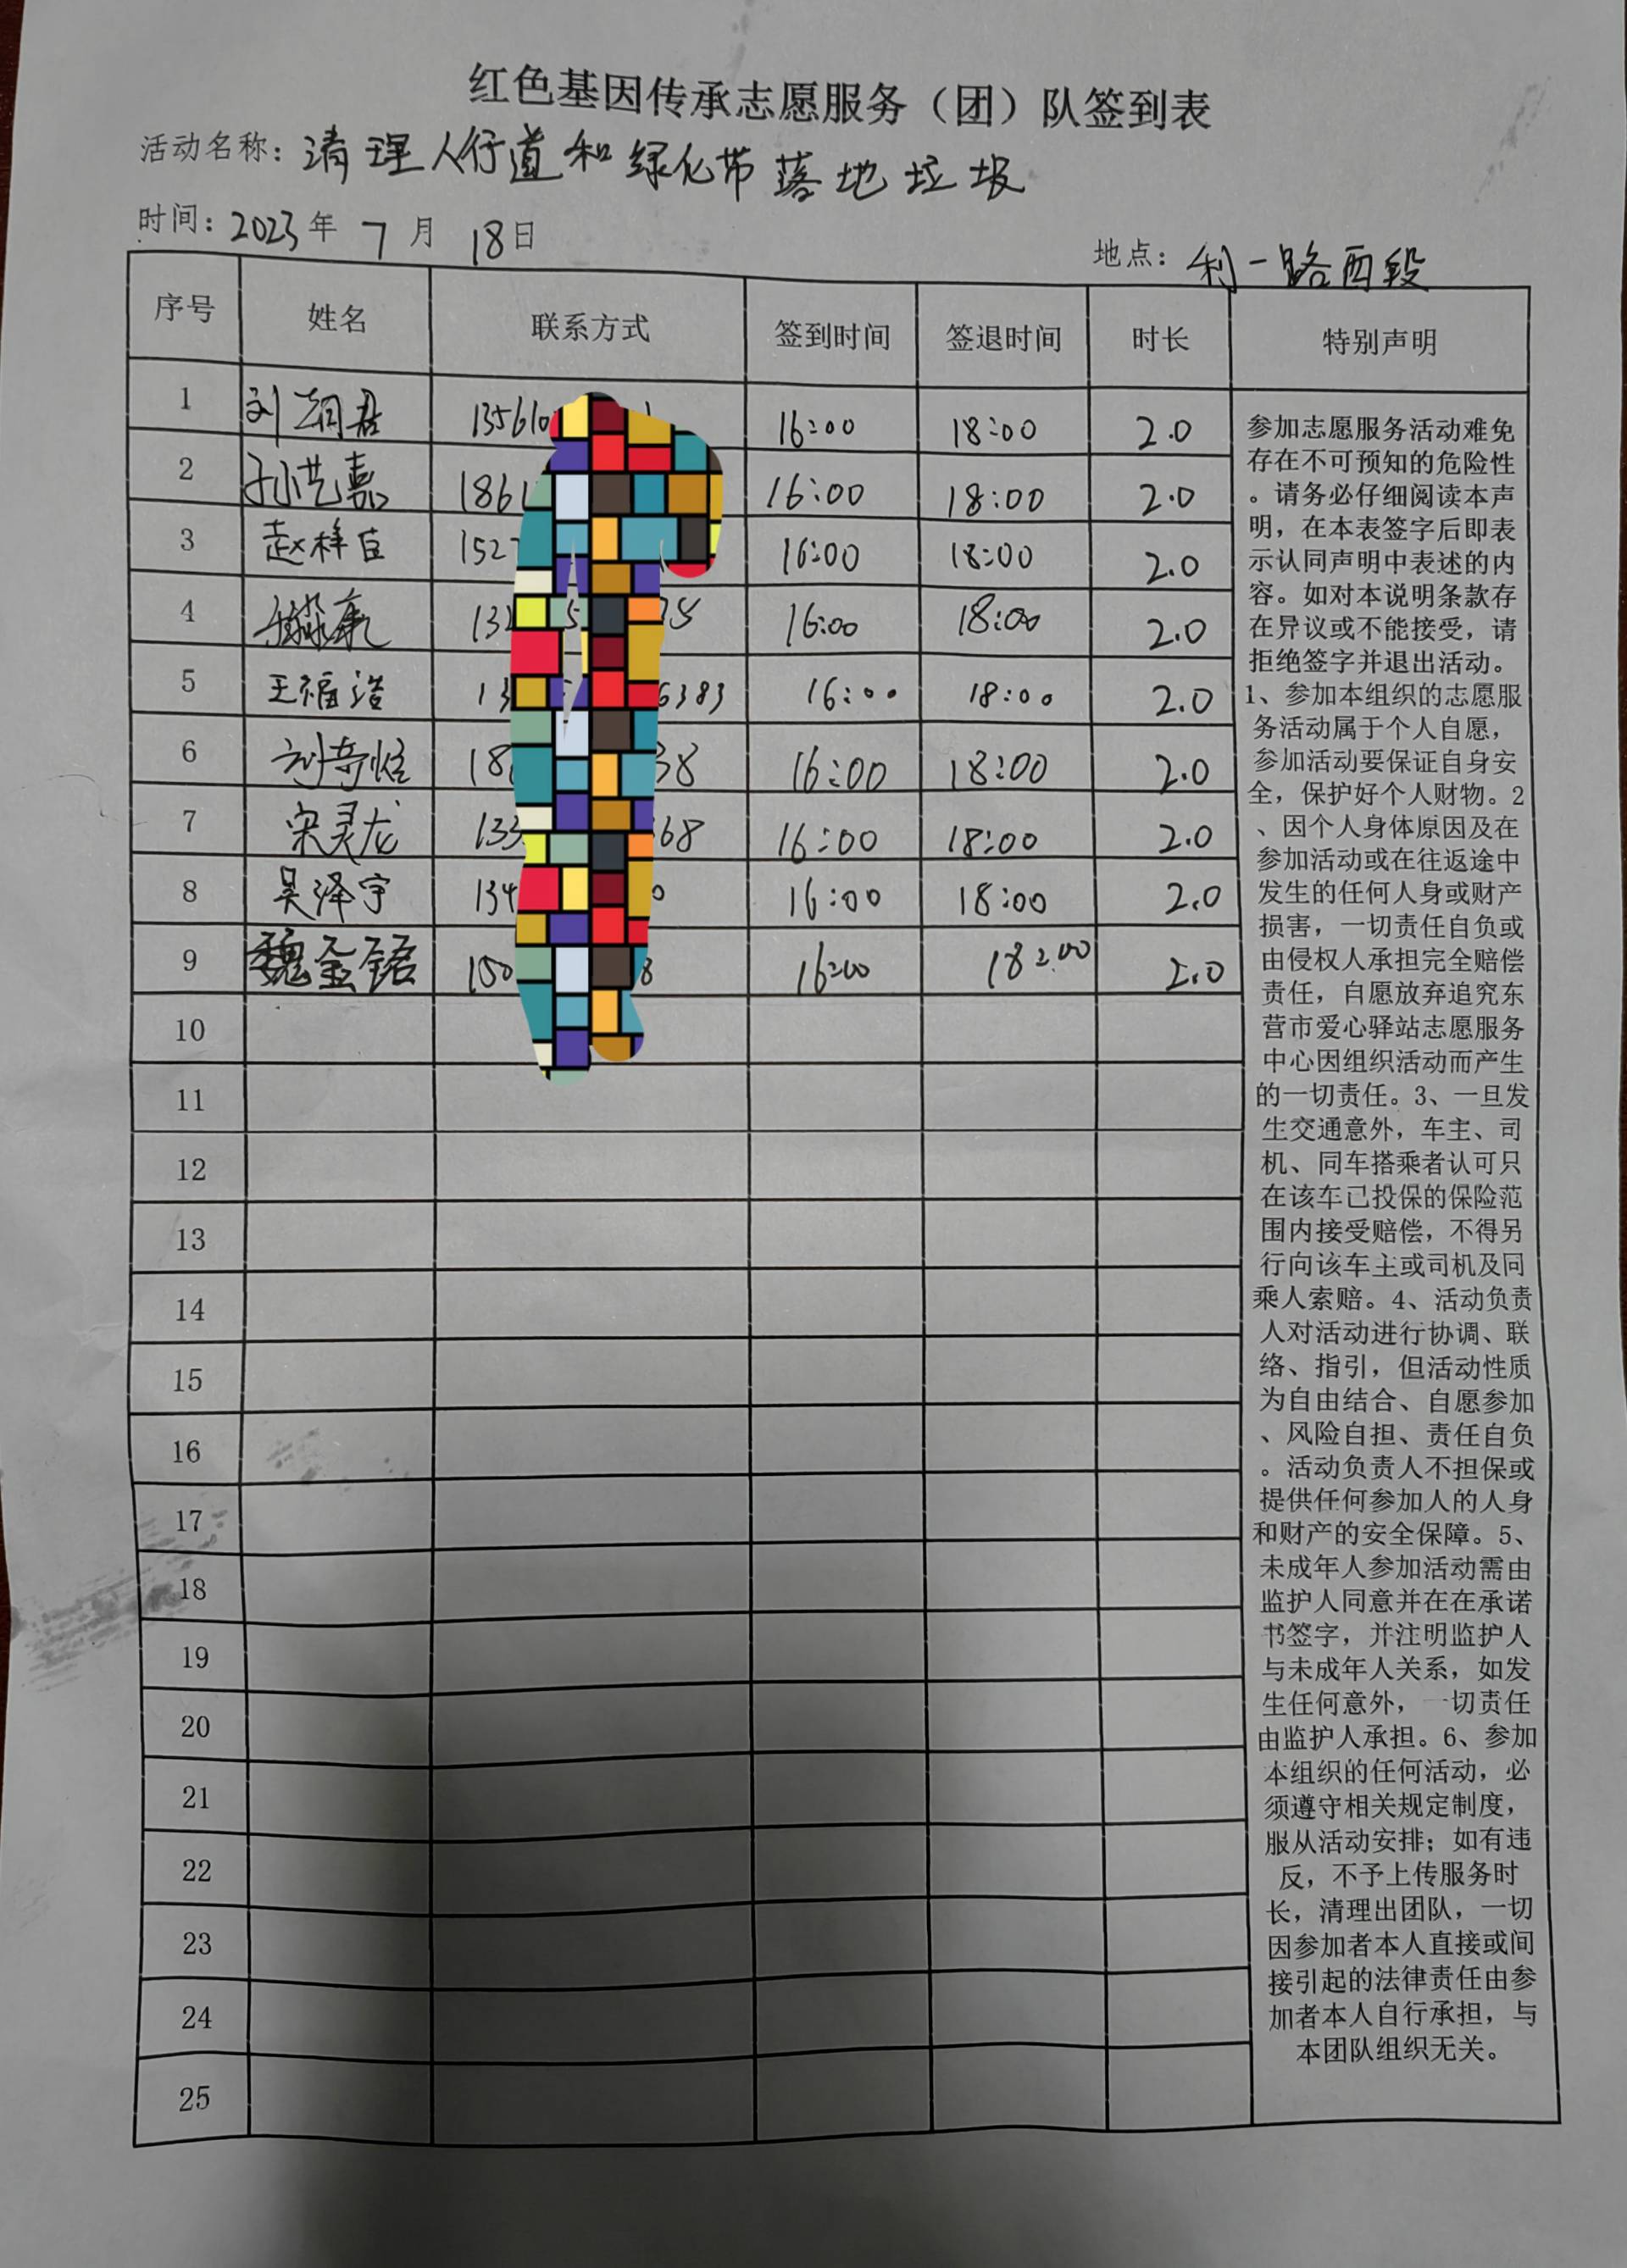 红色基因传承志愿服务（团）队签到表
活动名称：清理人行道和绿化带落地垃圾
时间：2023年 7月 18日
地点：利一路西段
序号 姓名 联系方式 签到时间 签退时间 时长 特别声明
1 刘 君 135610 16:00 18:00 2.0
2 孙艺嘉 1861 16:00 18:00 2.0
3 赵梓臣 152 16:00 18:00 2.0
4 康 13 16:00 18:00 2.0
5 王福浩 13 6383 16:00 18:00 2.0
6 刘奇 18 38 16:00 18:00 2.0
7 宋灵龙 133 68 16:00 18:00 2.0
8 吴泽宇 134 0 16:00 18:00 2.0
9 魏金锘 150 8 16:00 18:00 2.0
10
11
12
13
14
15
16
17
18
19
20
21
22
23
24
25
参加志愿服务活动难免
存在不可预知的危险性
。请务必仔细阅读本声
明，在本表签字后即表
示认同声明中表述的内
容。如对本说明条款存
在异议或不能接受，请
拒绝签字并退出活动。
1、参加本组织的志愿服
务活动属于个人自愿，
参加活动要保证自身安
全，保护好个人财物。2
、因个人身体原因及在
参加活动或在往返途中
发生的任何人身或财产
损害，一切责任自负或
由侵权人承担完全赔偿
责任，自愿放弃追究东
营市爱心驿站志愿服务
中心因组织活动而产生
的一切责任。3、一旦发
生交通意外，车主、司
机、同车搭乘者认可只
在该车已投保的保险范
围内接受赔偿，不得另
行向该车主或司机及同
乘人索赔。4、活动负责
人对活动进行协调、联
络、指引，但活动性质
为自由结合、自愿参加
、风险自担、责任自负
。活动负责人不担保或
提供任何参加人的人身
和财产的安全保障。5、
未成年人参加活动需由
监护人同意并在在承诺
书签字，并注明监护人
与未成年人关系，如发
生任何意外，一切责任
由监护人承担。6、参加
本组织的任何活动，必
须遵守相关规定制度，
服从活动安排；如有违
反，不予上传服务时
长，清理出团队，一切
因参加者本人直接或间
接引起的法律责任由参
加者本人自行承担，与
本团队组织无关。